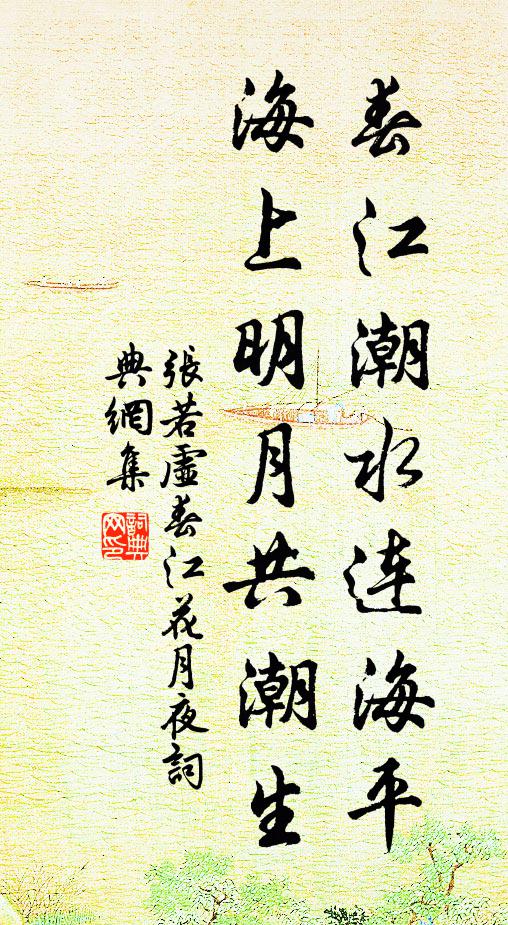 春江潮水連海平
海上明月共潮生
張若虛春江花月夜詞
典網集
詞典网印